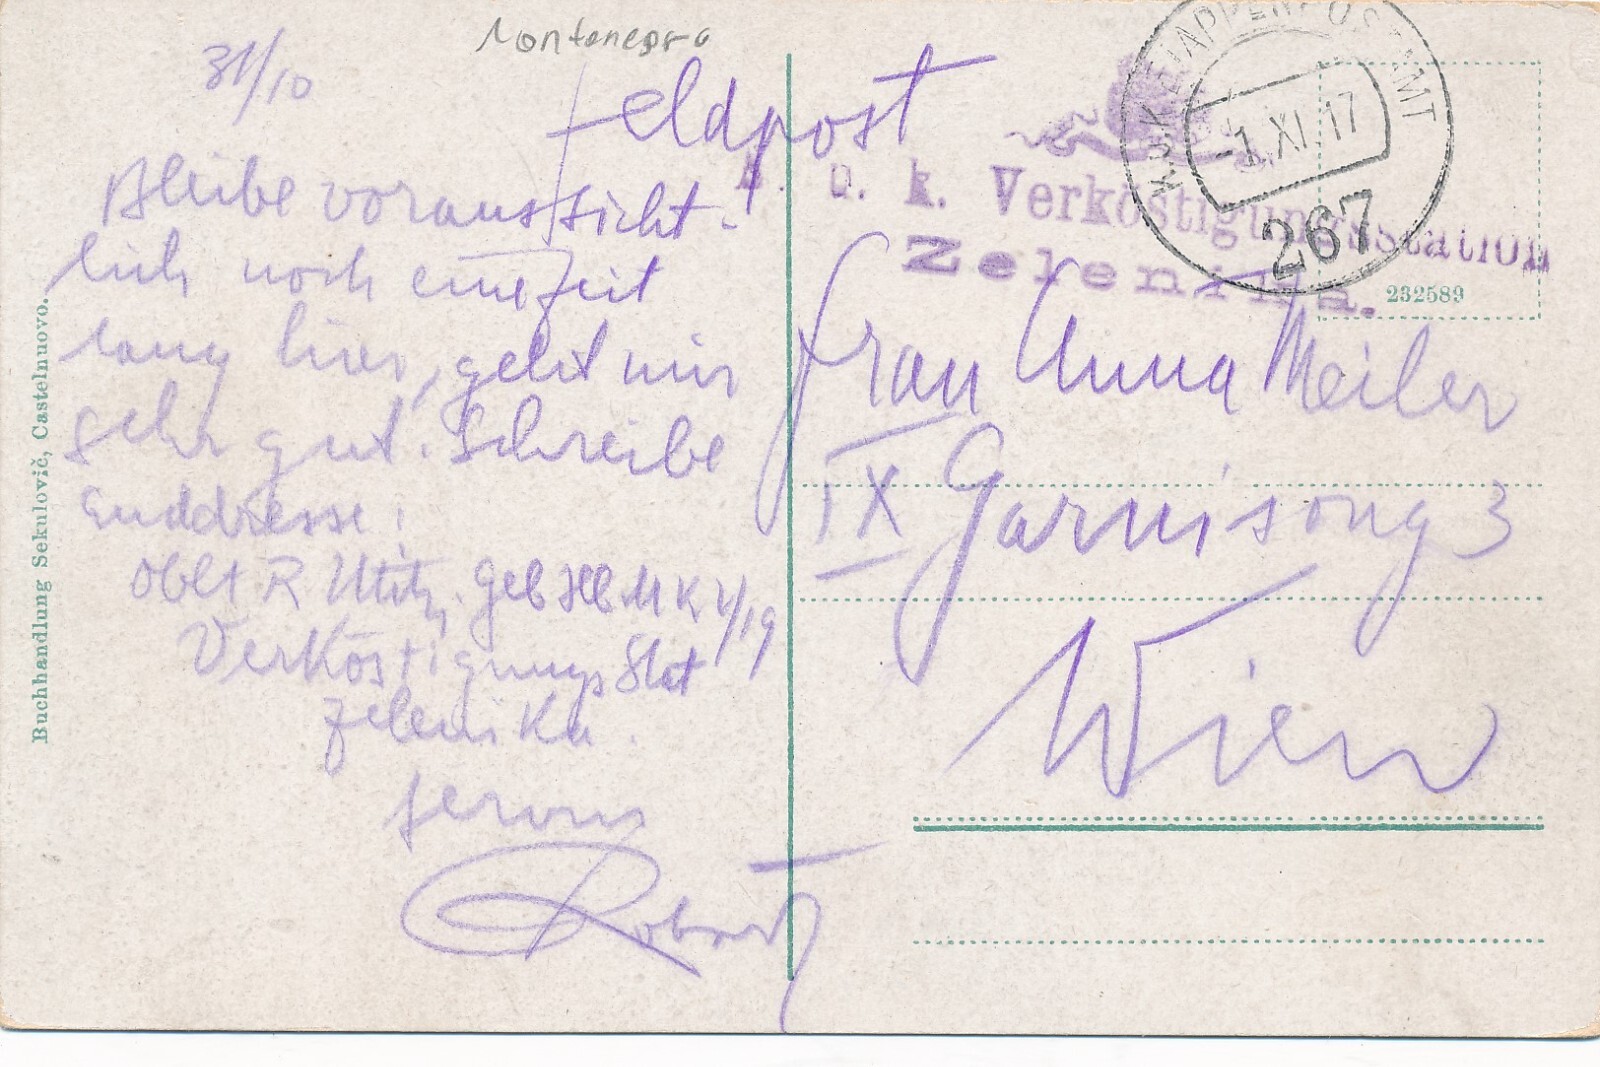 Montenegro
31/10
Feldpost
Bleibe voraussicht-
lich noch eine Zeit
lang hier, geht mir
sehr gut. Schreibe
Oblt R Utitz. Geb
Verköstigungs Stat
Zelenika.
Servus
Robert
K.u.K. ETAPPENPOSTAMT
-1.XI.17
267
k. u. k. Verköstigungsstation
Zelenika.
232589
Frau Anna Meiler
IX Garnisong 3
Wien
Buchhandlung Sekulovič, Castelnuovo.